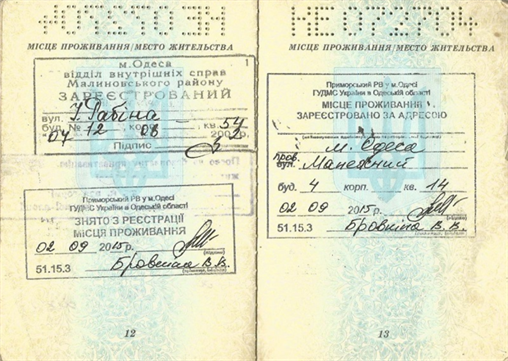 МІСЦЕ ПРОЖИВАННЯ/МЕСТО ЖИТЕЛЬСТВА
м.Одеса 1
відділ внутрішніх справ
Малиновського району
ЗАРЕЄСТРОВАНИЙ
вул. І. Рабіна
буд. № 12, корп. кв. 54
04 08 2002 р.
Підпис
Приморський РВ у м.Одесі
ГУДМС України в Одеській області
ЗНЯТО З РЕЄСТРАЦІЇ
МІСЦЕ ПРОЖИВАННЯ
02 09 2015 р.
51.15.3 Бровкіна В.В.
12
НЕ072704
МІСЦЕ ПРОЖИВАННЯ/МЕСТО ЖИТЕЛЬСТВА
Приморський РВ у м.Одесі
ГУДМС України в Одеській області
МІСЦЕ ПРОЖИВАННЯ
ЗАРЕЄСТРОВАНО ЗА АДРЕСОЮ
м. Одеса
пров.
вул. Манежний
буд. 4 корп. кв. 14
02 09 2015 р.
51.15.3 Бровкіна В.В.
13